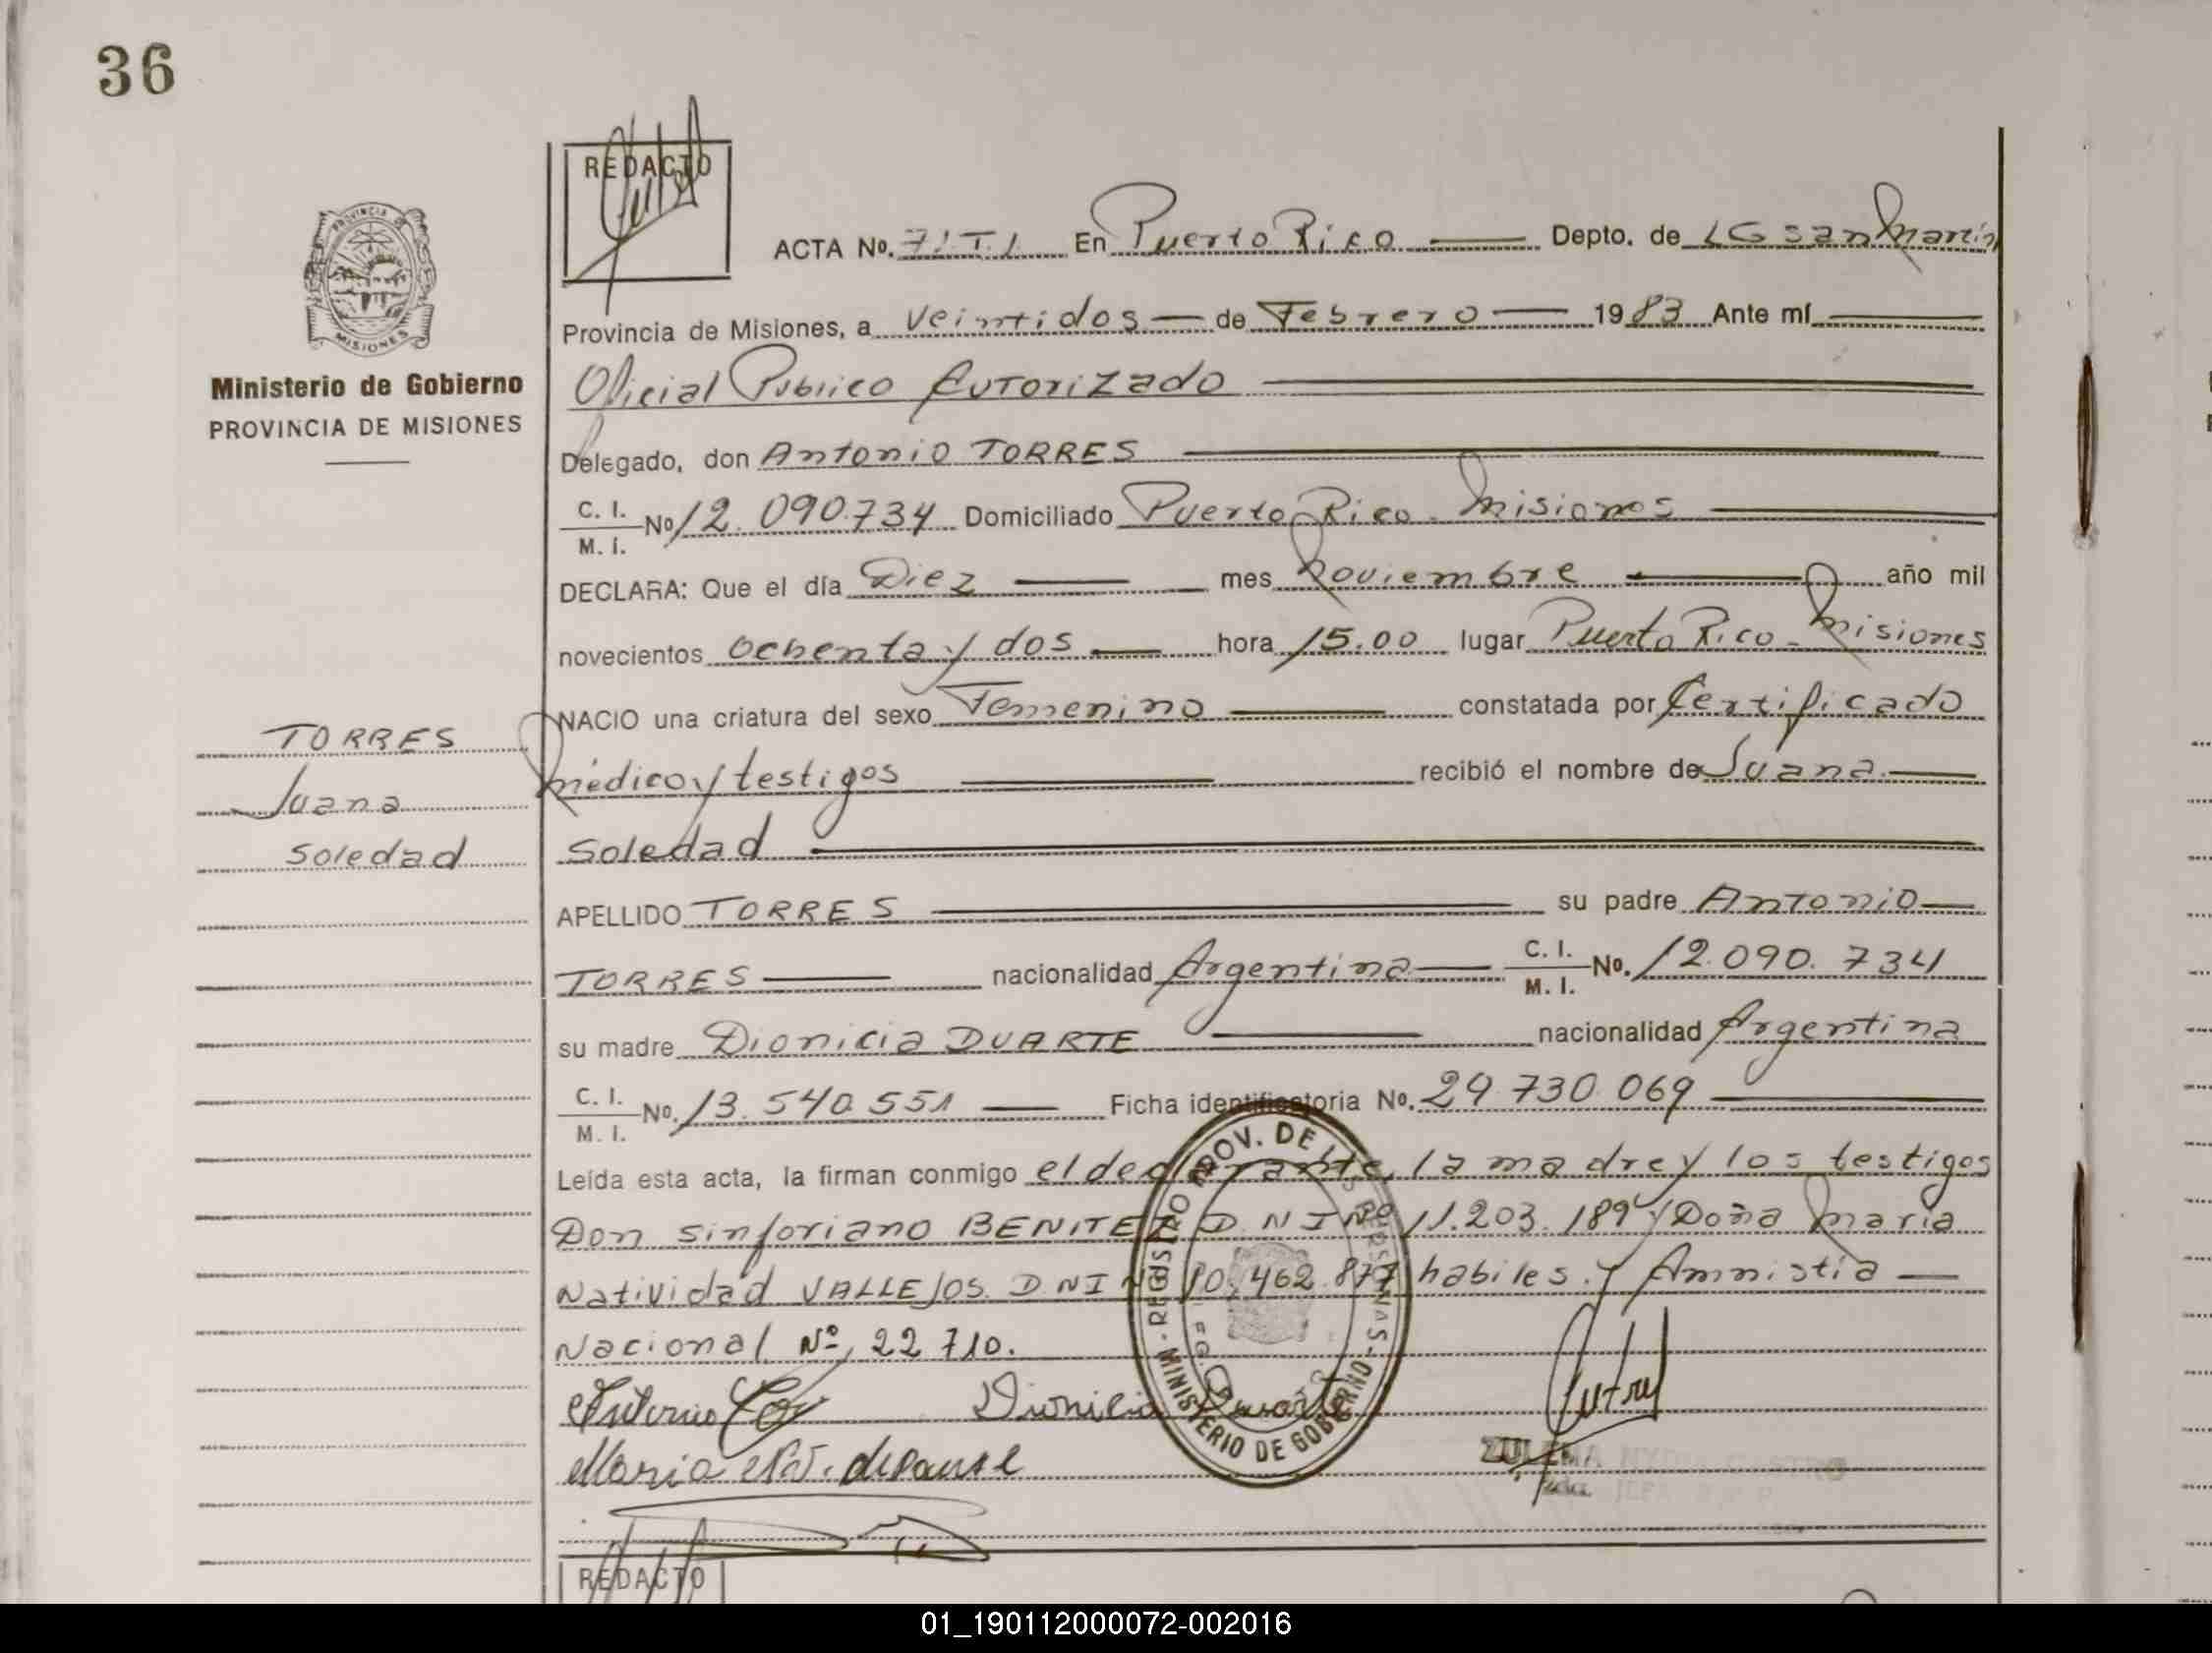 36
REDACTO
PROVINCIA DE
MISIONES
Ministerio de Gobierno
PROVINCIA DE MISIONES
ACTA No. 71.T.I En Puerto Rico Depto. de LG san Martin
Provincia de Misiones, a veintidos de Febrero 1983 Ante mí
Oficial Publico Autorizado
Delegado, don Antonio TORRES
C. I. M. I. No 12.090.734 Domiciliado Puerto Rico - Misiones
DECLARA: Que el día Diez mes Noviembre año mil
novecientos ochenta y dos hora 15.00 lugar Puerto Rico - Misiones
NACIO una criatura del sexo Femenino constatada por Certificado
médico y testigos recibió el nombre de Juana
Soledad
APELLIDO TORRES su padre Antonio
TORRES nacionalidad Argentina C. I. M. I. No. 12.090.734
su madre Dionicia DUARTE nacionalidad Argentina
C. I. M. I. No. 13.540.551 Ficha identificatoria No. 29.730.069
Leída esta acta, la firman conmigo el declarante, la madre y los testigos
Don Sinforiano BENITEZ D.N.I Nº 11.203.189 y Doña Maria
Natividad VALLEJOS. D.N.I Nº 10.462.877 habiles. y Amnistia
Nacional Nº 22.710.
TORRES
Juana
Soledad
Dionicia Duarte
Maria
REGISTRO PROV. DE LAS PERSONAS - MINISTERIO DE GOBIERNO
ZULEMA
REDACTO
01_190112000072-002016